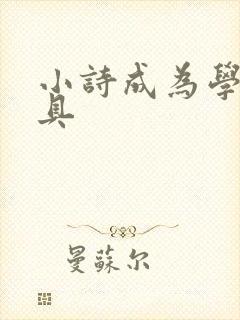 小詩成為學
具
曼蘇尔